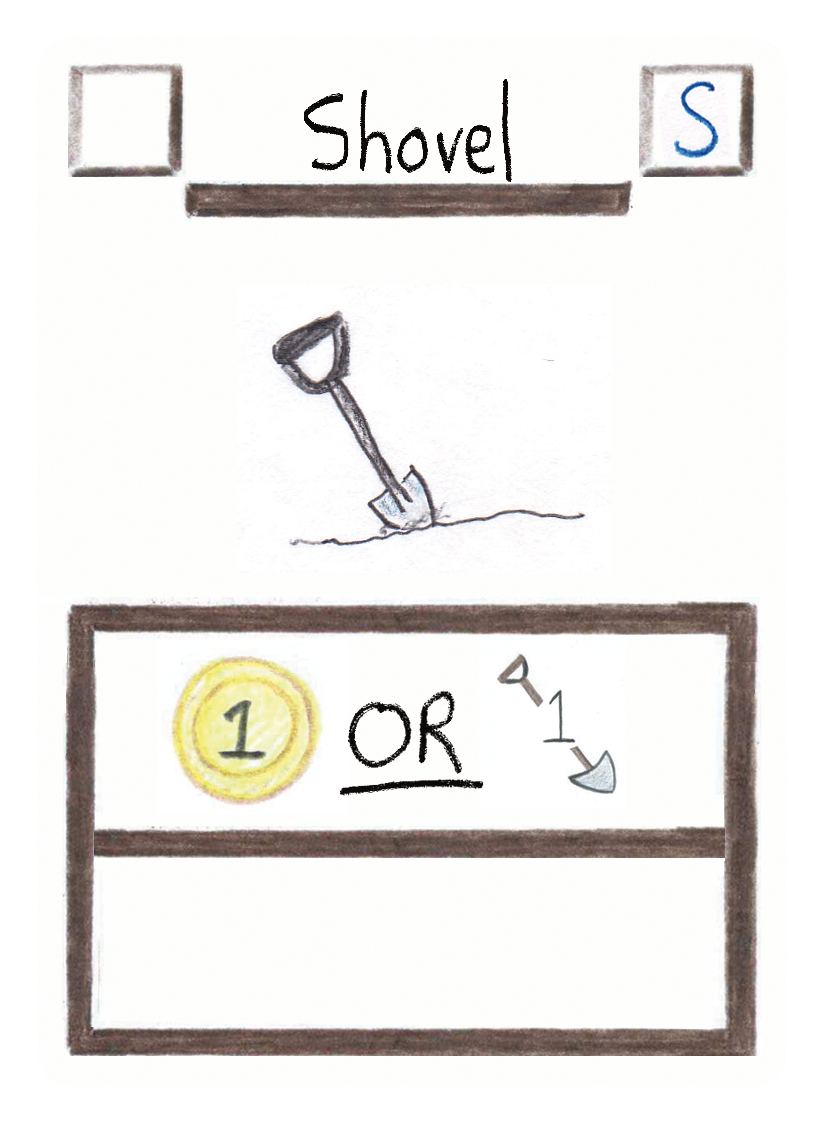 Shovel
S
1 OR 1